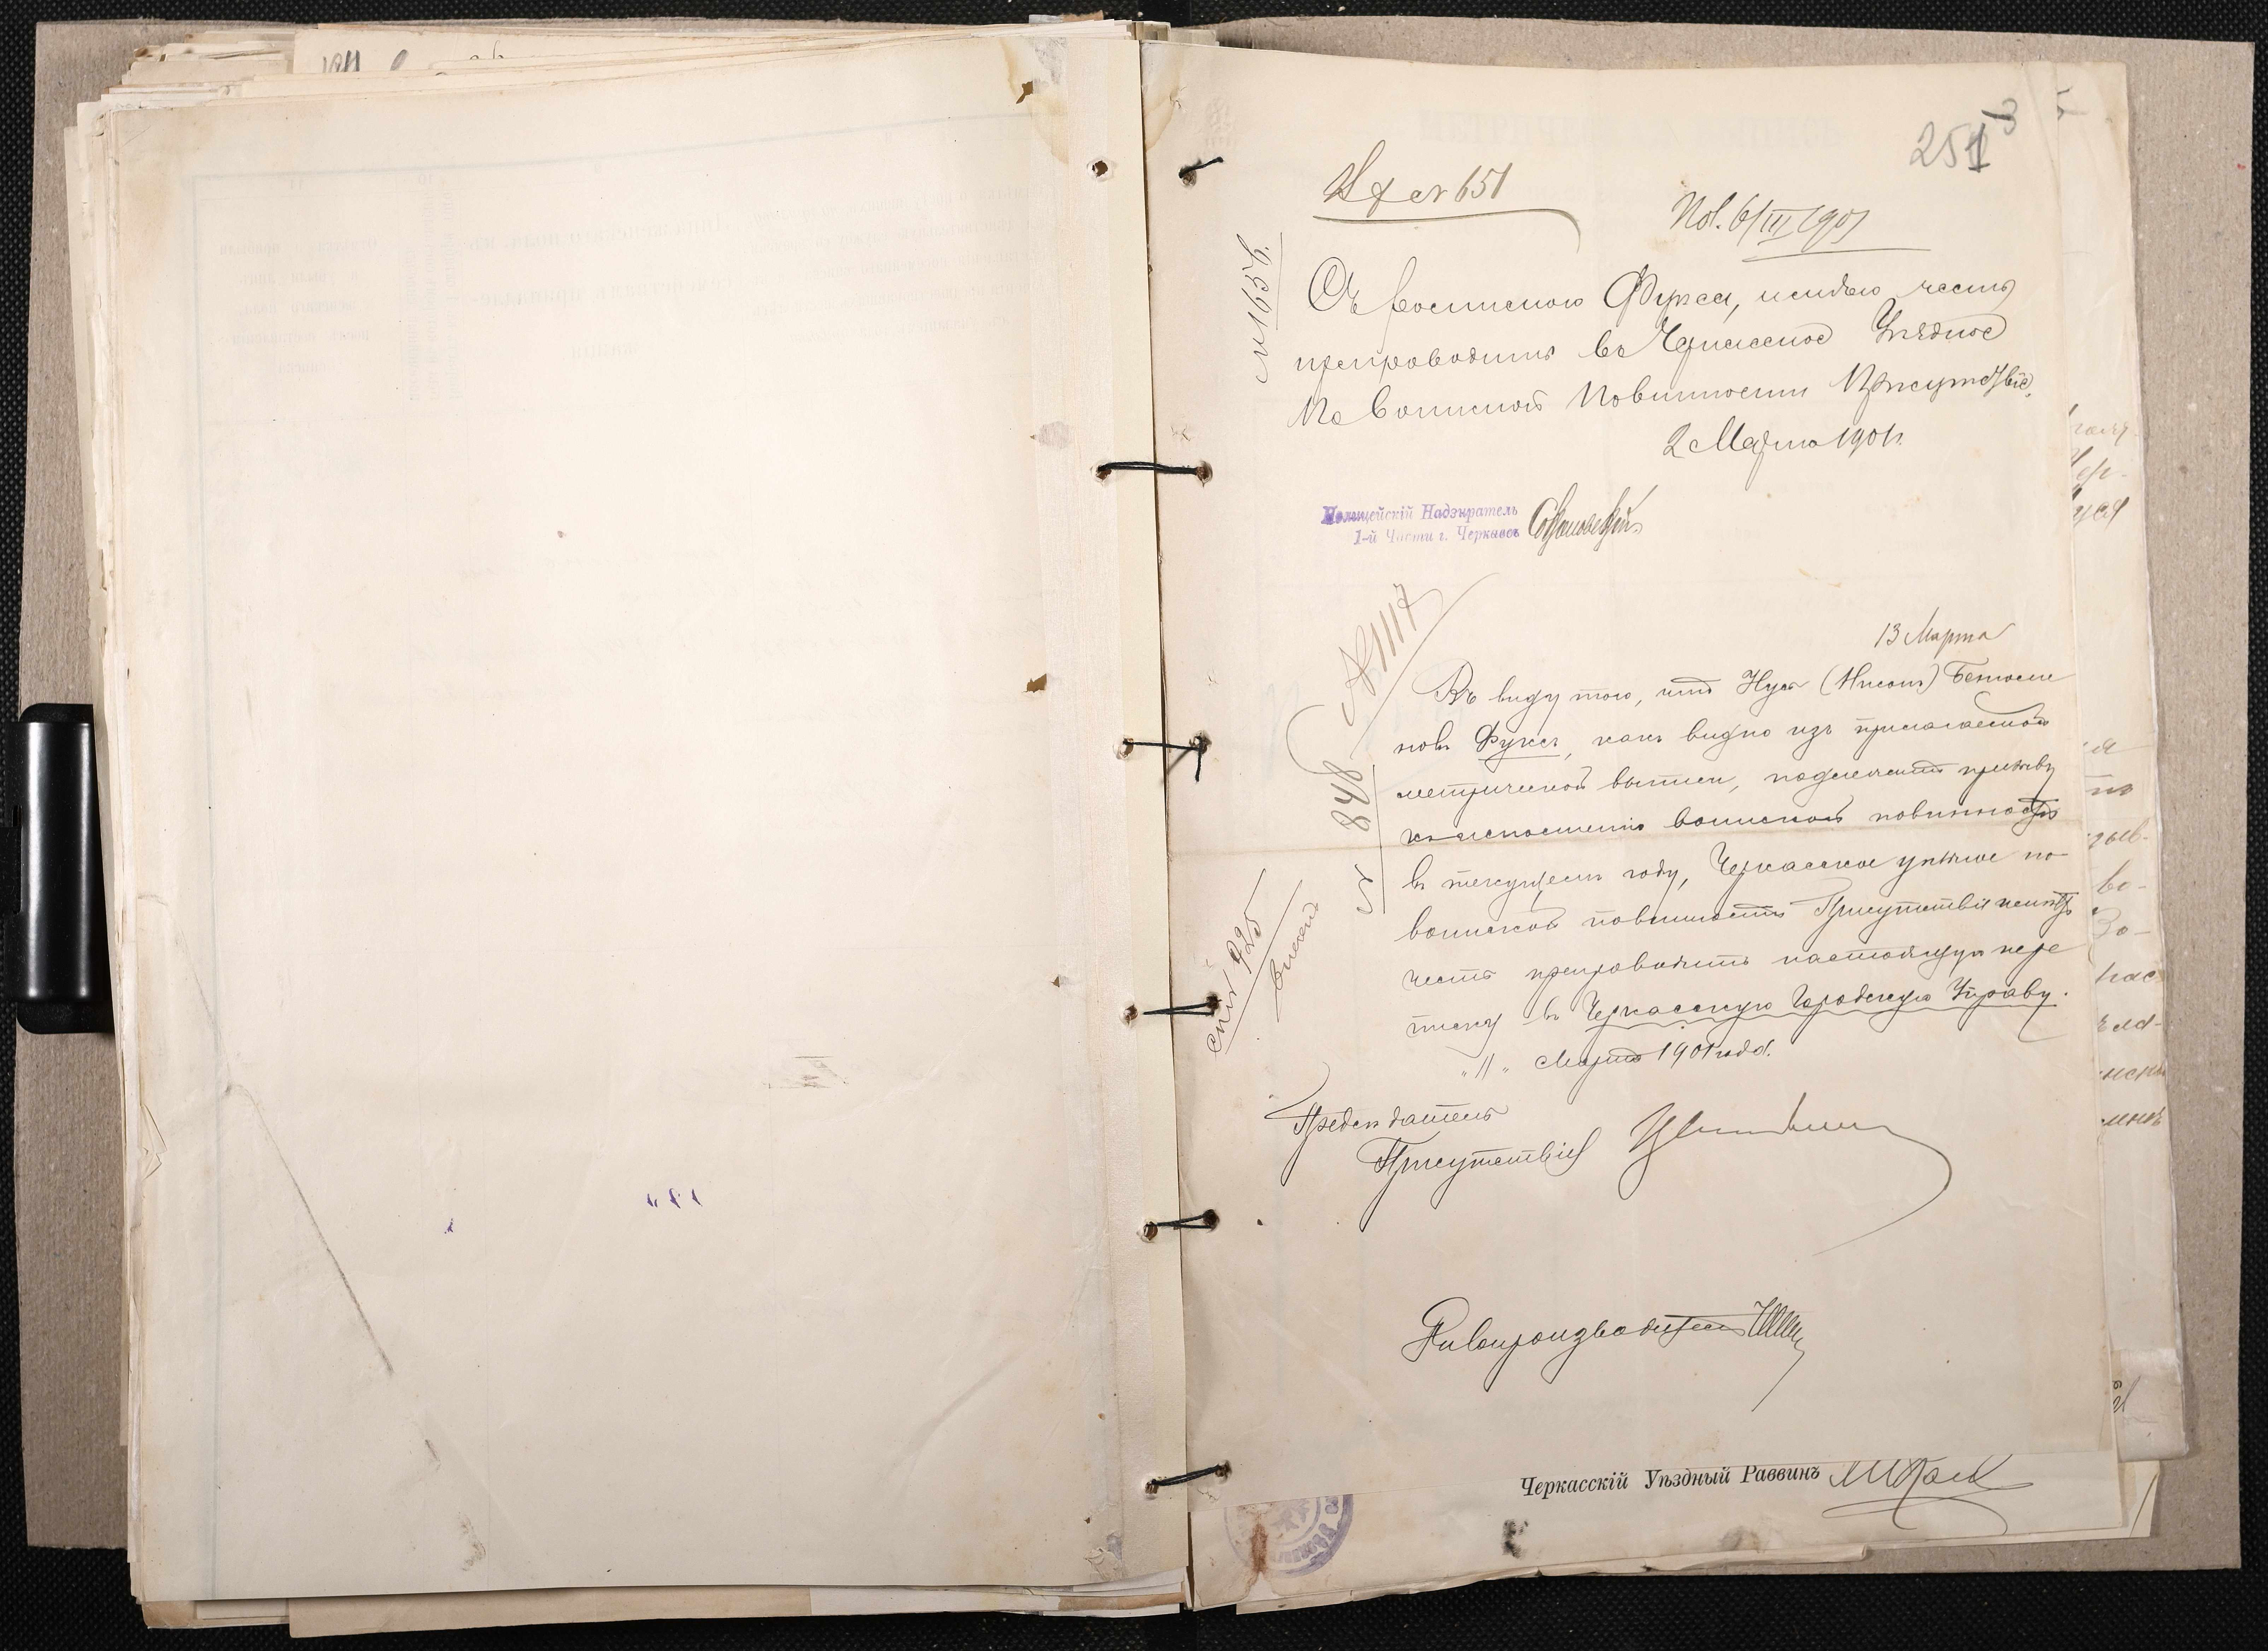 251
Вх № 651
Пол. 6/III 1901
№ 1656.
Съ роспискою Фукса, имѣю честь
препроводить въ Черкасское Уѣздное
По Воинской Повинности Присутствіе.
2 Марта 1901 г.
Полицейскій Надзиратель
1-й Части г. Черкассъ
13 Марта
№ 1117
Въ виду того, что Нусъ (Нисонъ)
новъ Фуксъ, какъ видно изъ прилагаемой
метрической выписи, подлежитъ призыву
къ исполненію воинской повинности
въ текущемъ году, Черкасское уѣздное по
воинской повинности Присутствіе имѣетъ
честь препроводить настоящую пере
писку въ Черкасскую Городскую Управу.
"11" Марта 1901 года.
№ 848
925
Предсѣдатель
Присутствія
Дѣлопроизводитель
Черкасскій Уѣздный Раввинъ